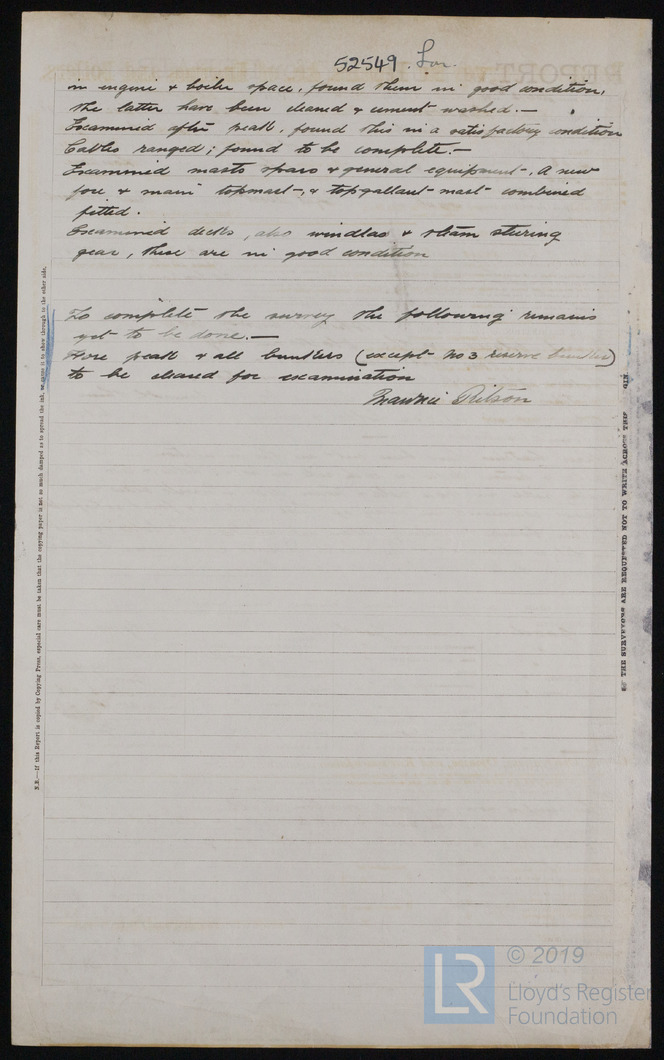 52549 Lon.
in engine & boiler space, found them in good condition,
the latter have been cleaned & cement washed.—
Examined after peak, found this in a satisfactory condition
Cables ranged; found to be complete.—
Examined masts spars & general equipment-, A new
fore & main topmast-, & topgallant- mast- combined
fitted.
Examined decks, also windlas & steam steering
gear, these are in good condition
To complete the survey the following remains
yet to be done.—
Fore peak & all bunkers (except No 3 reserve bunker)
to be cleared for examination
Ritson
N.B.—If this Report is copied by Copying Press, especial care must be taken that the copying paper is not so much damped as to spread the ink, or cause it to show through to the other side.
THE SURVEYORS ARE REQUESTED NOT TO WRITE ACROSS THIS
LR
© 2019
Lloyd's Register
Foundation